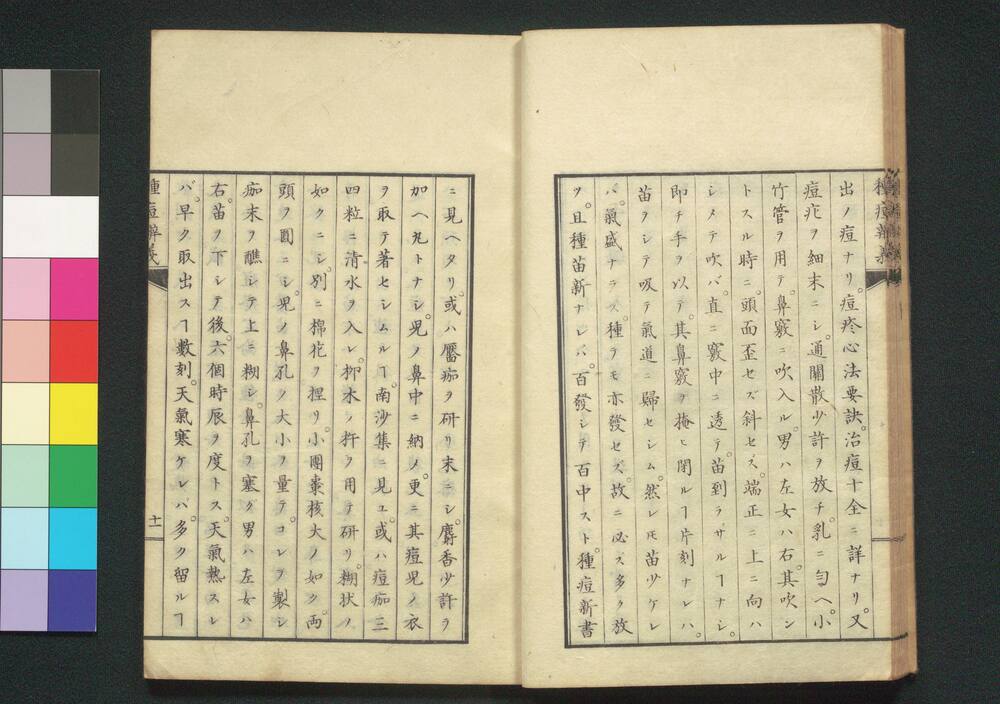 出ノ痘ナリ。痘疹心法要訣。治痘十全ニ詳ナリ。又
痘疕ヲ細末ニシ。通關散少許ヲ放チ乳ニ匀ヘ。小
竹管ヲ用テ。鼻竅ニ吹入ル。男ハ左女ハ右。其吹ン
トスル時ニ。頭面歪セズ斜セズ。端正ニ上ニ向ハ
シメテ吹バ。直ニ竅中ニ透テ。苗到ラサルヿナシ。
即チ手ヲ以テ。其鼻竅ヲ掩ヒ閉ルヿ片刻ナレハ。
苗ヲシテ吸テ氣道ニ歸セシム。然レモ苗少ケレ
バ。氣盛ナラス。種ヲモ亦發セズ。故ニ必ズ多ク放
ヲ。且種苗新ナレバ。百發シテ百中スト。種痘新書
ニ見ヘタリ。或ハ靨痂ヲ研リ末ニシ。麝香少許ヲ
加ヘ丸トナシ。児ノ鼻中ニ納ノ。更ニ其痘児ノ衣
ヲ取テ著セシムルヿ。南沙集ニ見ユ。或ハ痘痂三
四粒ニ清水ヲ入レ。柳木ノ杵ヲ用テ研リ。糊状ノ
如クニシ。別ニ棉花ヲ捏リ。小團棗核大ノ如ク。両
頭ヲ圓ニシ。児ノ鼻孔ノ大小ヲ量テ。コレヲ製シ
痂末ヲ醮シテ上ニ糊シ。鼻孔ヲ塞グ男ハ左女ハ
右。苗ヲ下シテ後。六個時辰ヲ度トス。天氣熱スレ
バ。早ク取出スヿ數刻。天氣寒ケレバ。多ク留ルヿ
種痘辨義
十一